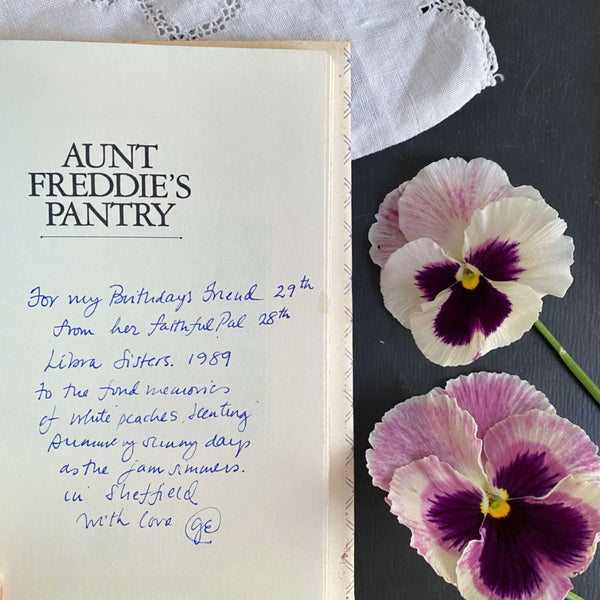 AUNT
FREDDIE'S
PANTRY
For my Birthdays Friend 29th
from her faithful Pal 28th
Libra Sisters. 1989
to the fond memories
of white peaches, scenting
of sunny days
as the jam simmers.
in Sheffield
With Love GE